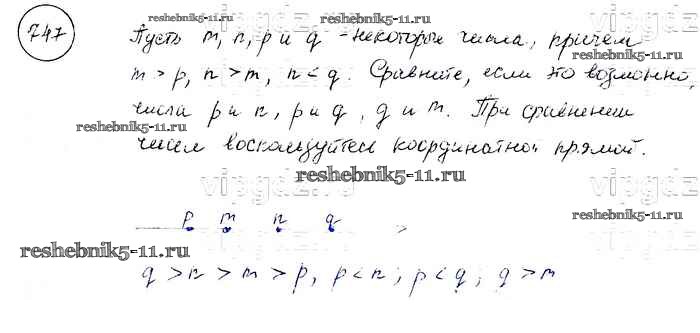 reshebnik5-11.ru
747 Пусть m, n, p и q - некоторые числа, причем
reshebnik5-11.ru
m > p, n > m, n < q. Сравните, если это возможно,
reshebnik5-11.ru
числа p и n, p и q, q и m. При сравнении
reshebnik5-11.ru
чисел воспользуйтесь координатной прямой.
reshebnik5-11.ru
vipgdz
vipgdz
p m n q
reshebnik5-11.ru
reshebnik5-11.ru
q > n > m > p, p < n; p < q; q > m
reshebnik5-11.ru